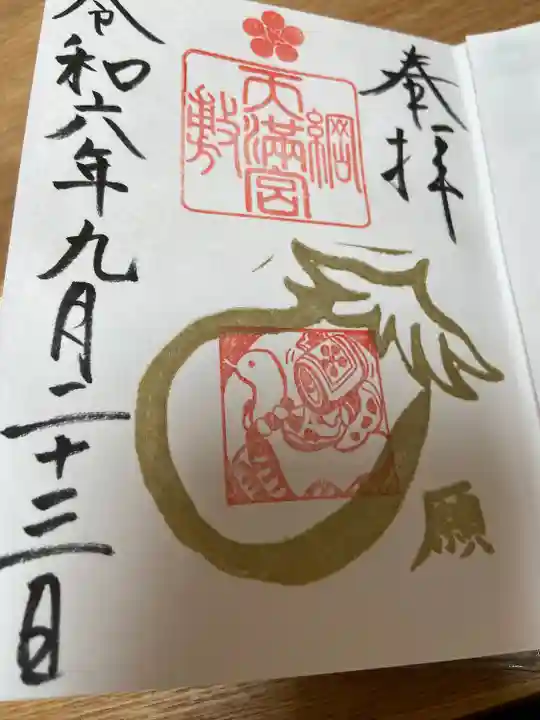 奉拝
綱敷天満宮
願
令和六年九月二十二日